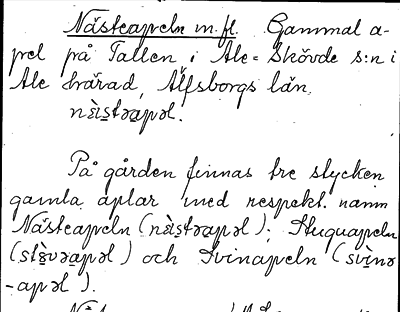 Nästeapeln m. fl. Gammal a-
pel på Tallen i Ale-Skövde s:n i
Ale härad, Älfsborgs län.
nɛ̀i̯stəa̠pəl.
På gården finnas tre stycken
gamla aplar med respekt. namn
Nästeapeln (nɛ̀i̯stəapəl); Stuguapeln
(stɵ̀vəapəl) och Svinapeln (svìnə
-apəl).